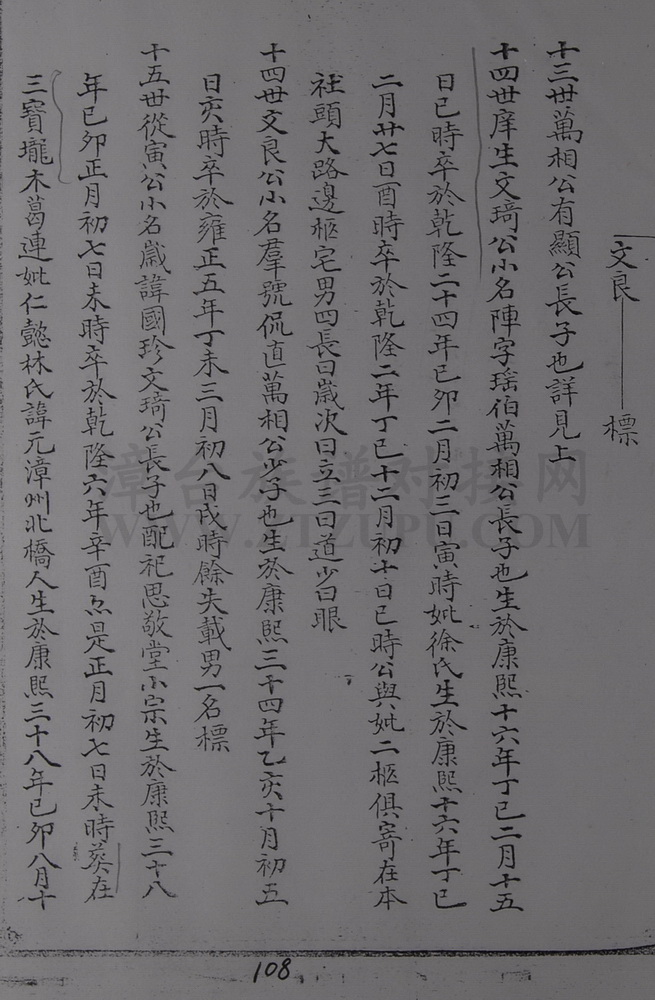 文良——標
十三世萬相公有顯公長子也詳見上
十四世庠生文琦公小名陣字瑤伯萬相公長子也生於康熙十六年丁巳二月十五
日巳時卒於乾隆二十四年己卯二月初三日寅時妣徐氏生於康熙十六年丁巳
二月廿七日酉時卒於乾隆二年丁巳十二月初十日巳時公與妣二柩俱寄在本
社頭大路邊柩宅男四長曰嵗次曰立三曰道少曰眼
十四世文良公小名羣號侃直萬相公少子也生於康熙三十四年乙亥十月初五
日亥時卒於雍正五年丁未三月初八日戌時餘失載男一名標
十五世從寅公小名嵗諱國珍文琦公長子也配祀思敬堂小宗生於康熙三十八
年己卯正月初七日未時卒於乾隆六年辛酉亦是正月初七日未時葬在
三寶壠木葛連妣仁懿林氏諱元漳州北橋人生於康熙三十八年己卯八月十
108
漳台族谱对接网
WWW.ZTZUPU.COM